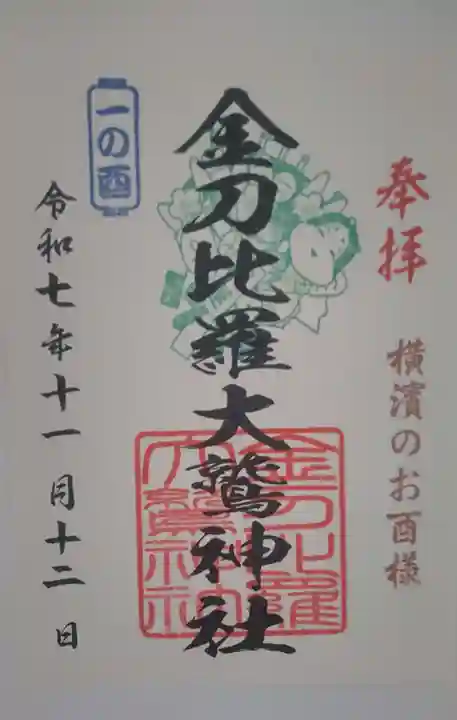 奉拝
横濱のお酉様
金刀比羅大鷲神社
金刀比羅
大鷲神社
一の酉
令和七年十一月十二日